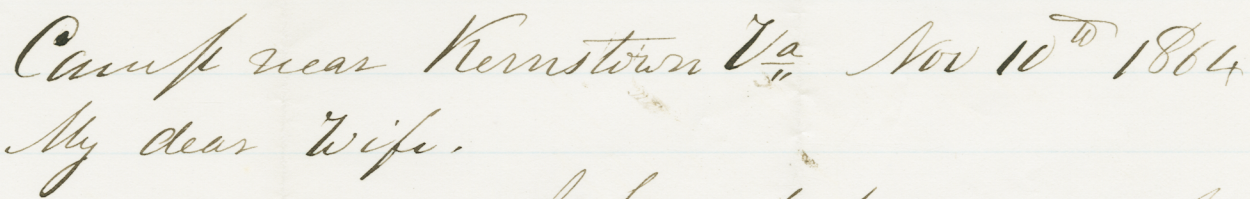 Camp near Kernstown Va Nov 10th 1864
My dear Wife.